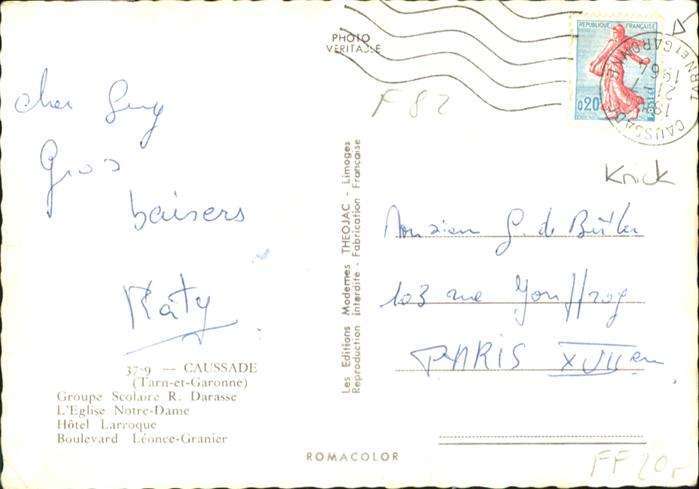 PHOTO
VERITABLE
REPUBLIQUE FRANÇAISE
0,20
CAUSSADE
TARN ET GARONNE
21
1964
F 82
cher Guy
Gros
baisers
Katy
Knick
Monsieur G. de
103 rue Jouffroy
PARIS XVII em
37-9 — CAUSSADE
(Tarn-et-Garonne)
Groupe Scolaire R. Darasse
L'Eglise Notre-Dame
Hôtel Larroque
Boulevard Léonce-Granier
Les Editions Modernes THEOJAC - Limoges
Reproduction interdite - Fabrication Française
ROMACOLOR
FF 20,